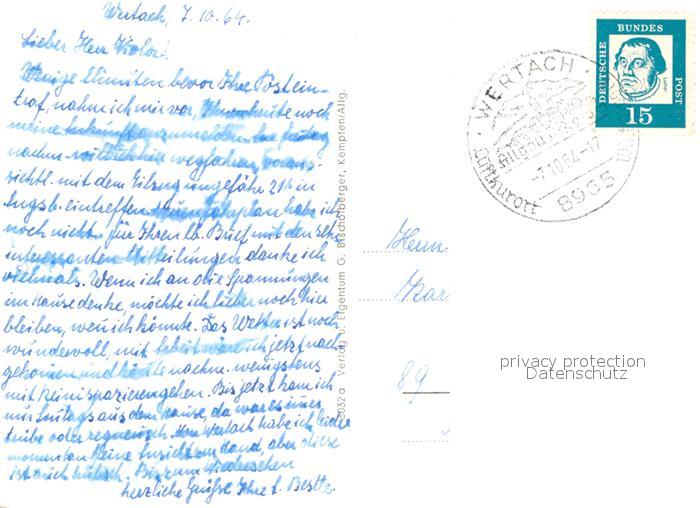 Wertach, 7.10.64.
Lieber Herr
Wenige Minuten bevor Ihre Post ein-
traf, nahm ich mir vor, Ihnen heute noch
meine Ankunft anzumelden.
nachm. will ich hier wegfahren, voraus-
sichtl. mit dem Eilzug ungefähr 21h in
Augsb. eintreffen. habe ich
noch nicht. Für Ihren lb. Brief mit den sehr
interessanten Mitteilungen danke ich
vielmals. Wenn ich an die Spannungen
im Hause denke, möchte ich lieber noch hier
bleiben, wenn ich könnte. Das Wetter ist noch
wundervoll, mit Arbeit wäre ich jetzt nach-
gekommen und könnte nachm. wenigstens
mit Reini spazierengehen. Bis jetzt kam ich
nur Sonntags aus dem Hause, da war es immer
trübe oder regnerisch. Von Wertach habe ich leider
momentan keine Ansicht zur Hand, aber diese
ist auch hübsch. Bis zum Wiedersehen
herzliche Grüße Ihre
032a Verlag u. Eigentum G. Bischofberger, Kempten/Allg.
DEUTSCHE BUNDESPOST
Luther
15
WERTACH
Luftkurort
-7.10.64-17
8965
Herrn
89
privacy protection
Datenschutz